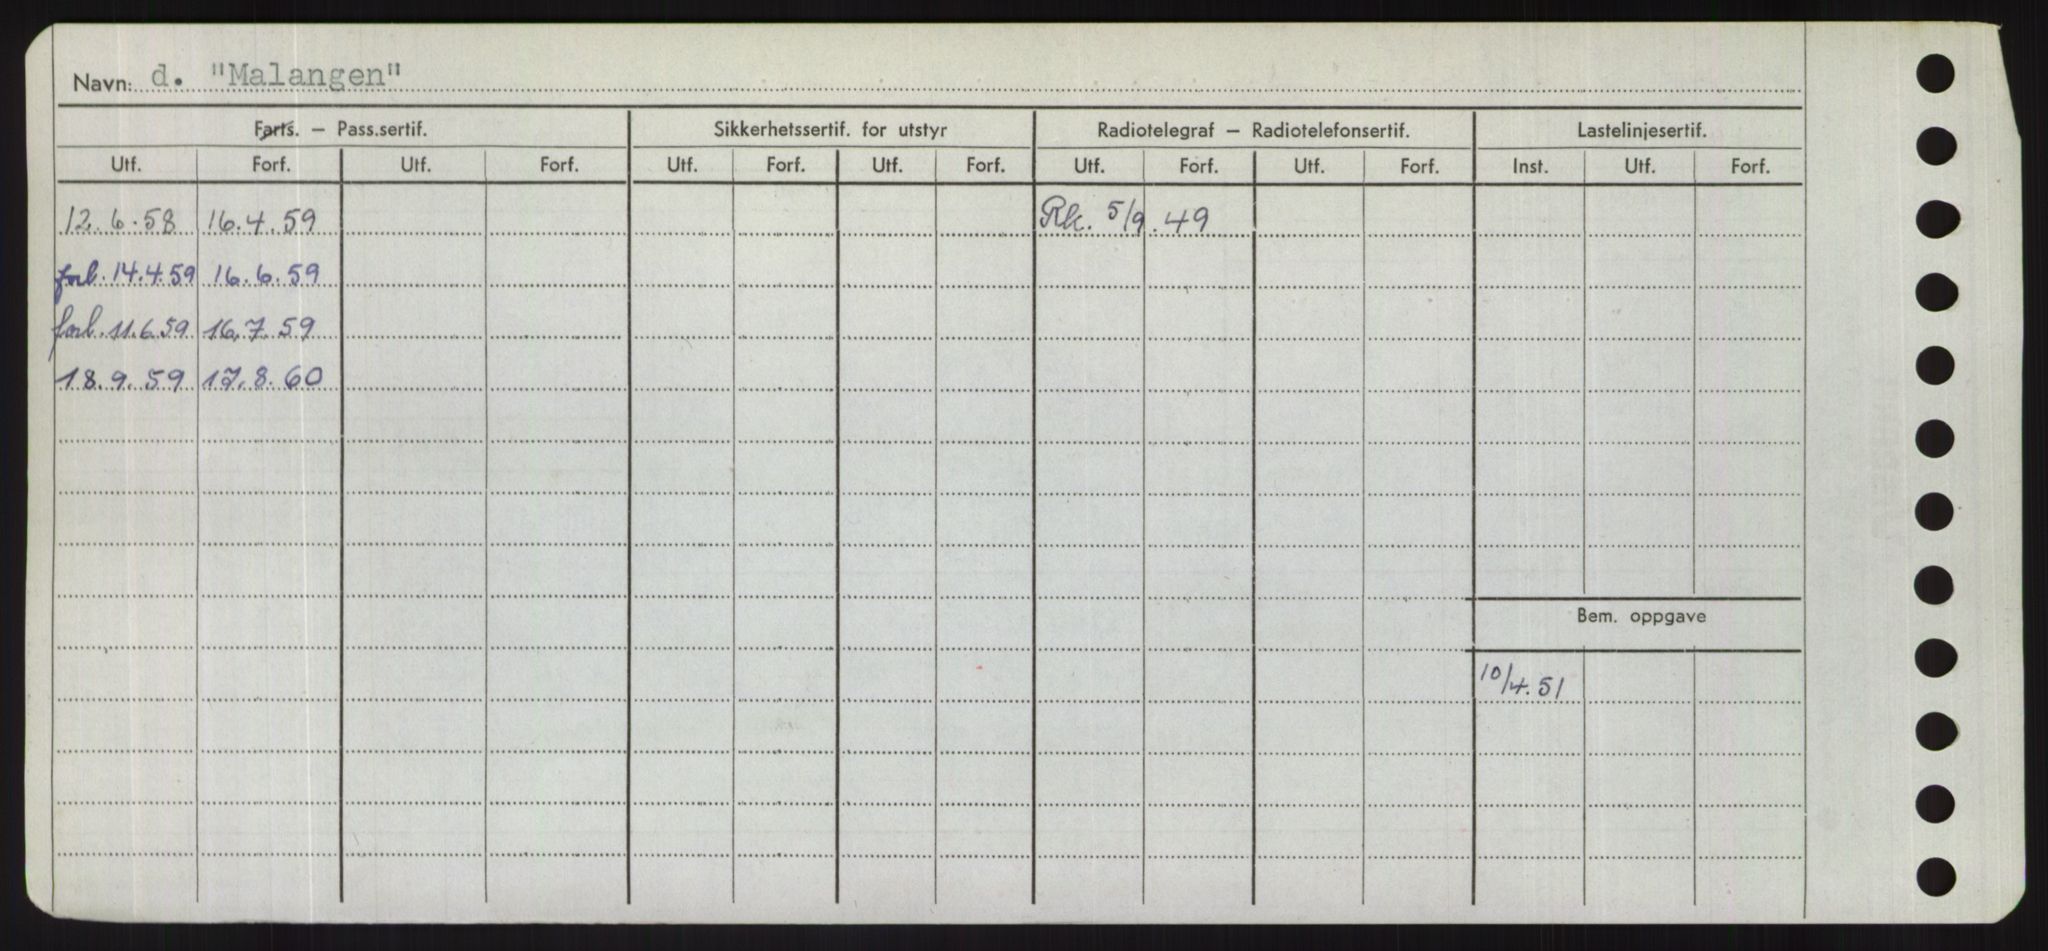 Navn: d. "Malangen"
Farts. – Pass.sertif. Sikkerhetssertif. for utstyr Radiotelegraf – Radiotelefonsertif. Lastelinjesertif.
Utf. Forf. Utf. Forf. Utf. Forf. Utf. Forf. Utf. Forf. Utf. Forf. Inst. Utf. Forf.
12.6.58 16.4.59 Rk. 5/9.49
forl. 14.4.59 16.6.59
forl. 11.6.59 16.7.59
18.9.59 17.8.60
Bem. oppgave
10/4.51